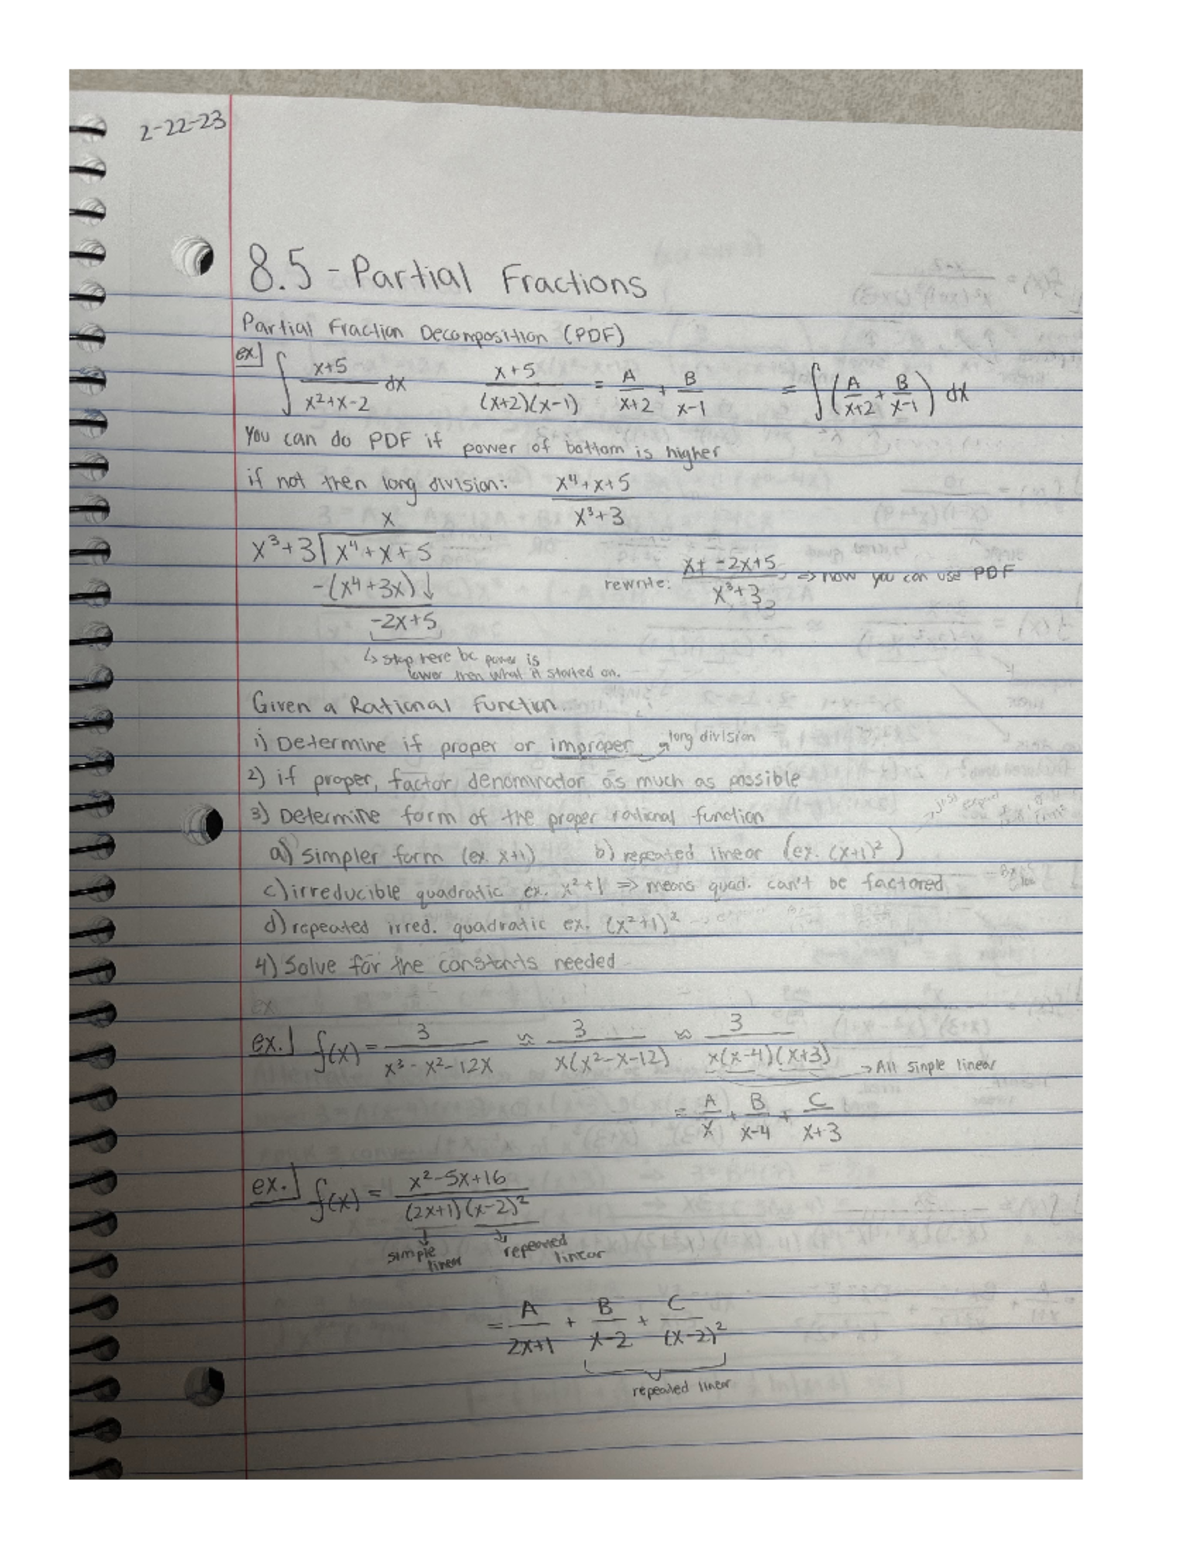 2-22-23
8.5 - Partial Fractions
Partial Fraction Decomposition (PDF)
ex] ∫ x+5 / x²+x-2 dx   x+5 / (x+2)(x-1) = A / x+2 + B / x-1   = ∫ ( A / x+2 + B / x-1 ) dx
You can do PDF if power of bottom is higher
if not then long division:   x⁴+x+5 / x³+3
x
x³+3 √ x⁴+x+5
-(x⁴+3x)↓   rewrite: x+ -2x+5 / x³+3 => now you can use PDF
-2x+5
↳ stop here bc power is
lower then what it started on.
Given a Rational Function
1) Determine if proper or improper → long division
2) if proper, factor denominator as much as possible
3) Determine form of the proper rational function
a) simpler form (ex. x+1)   b) repeated linear (ex. (x+1)²)
c) irreducible quadratic ex. x²+1 => means quad. can't be factored
d) repeated irred. quadratic ex. (x²+1)²
4) Solve for the constants needed
ex.
ex.] f(x) = 3 / x³-x²-12x ≈ 3 / x(x²-x-12) ≈ 3 / x(x-4)(x+3) → All simple linear
= A / x + B / x-4 + C / x+3
ex.] f(x) = x²-5x+16 / (2x+1)(x-2)²
simple linear   repeated linear
= A / 2x+1 + B / x-2 + C / (x-2)²
repeated linear